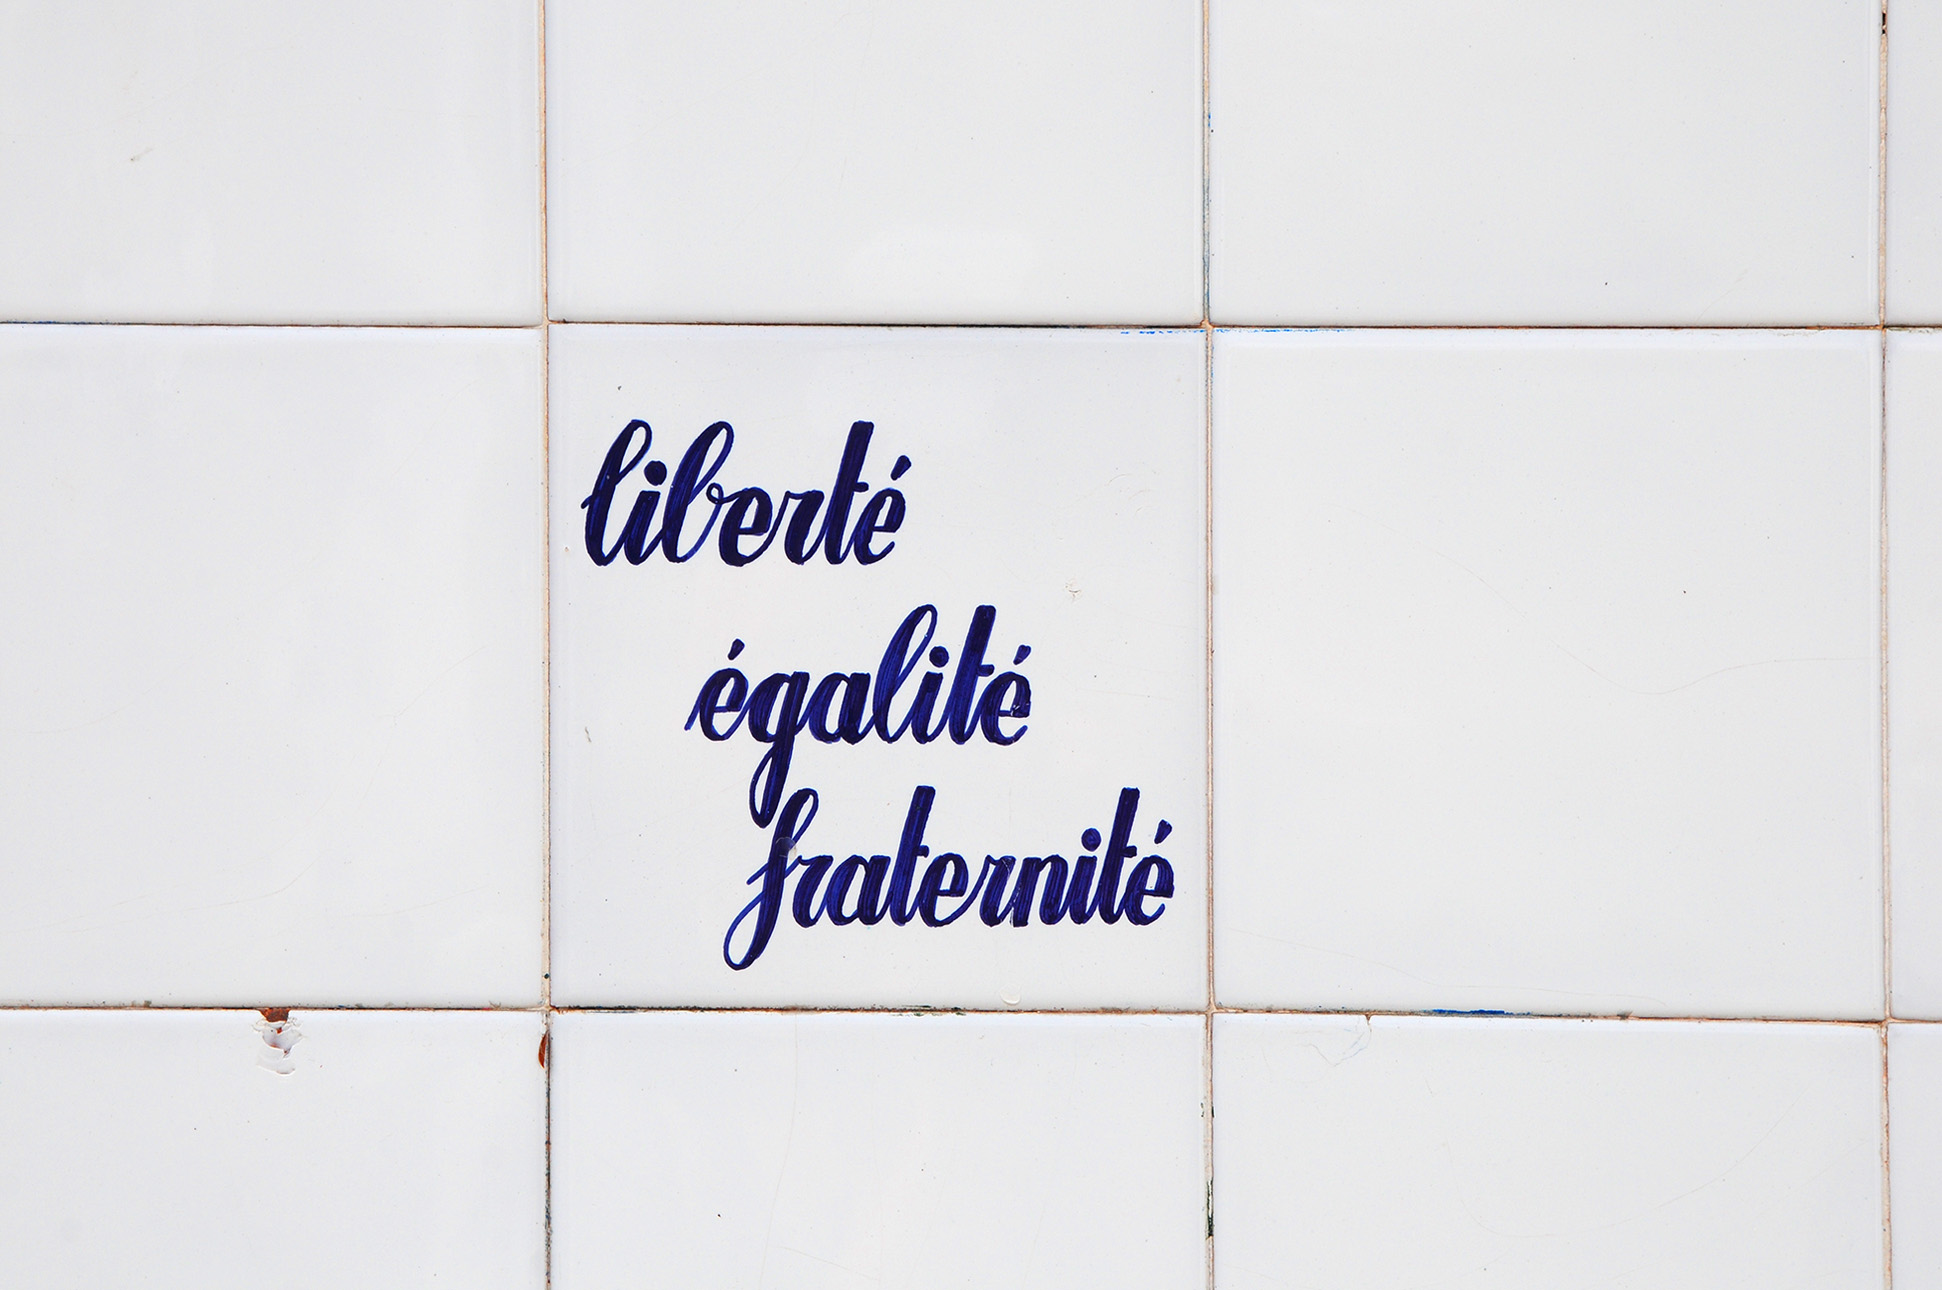 liberté
égalité
fraternité